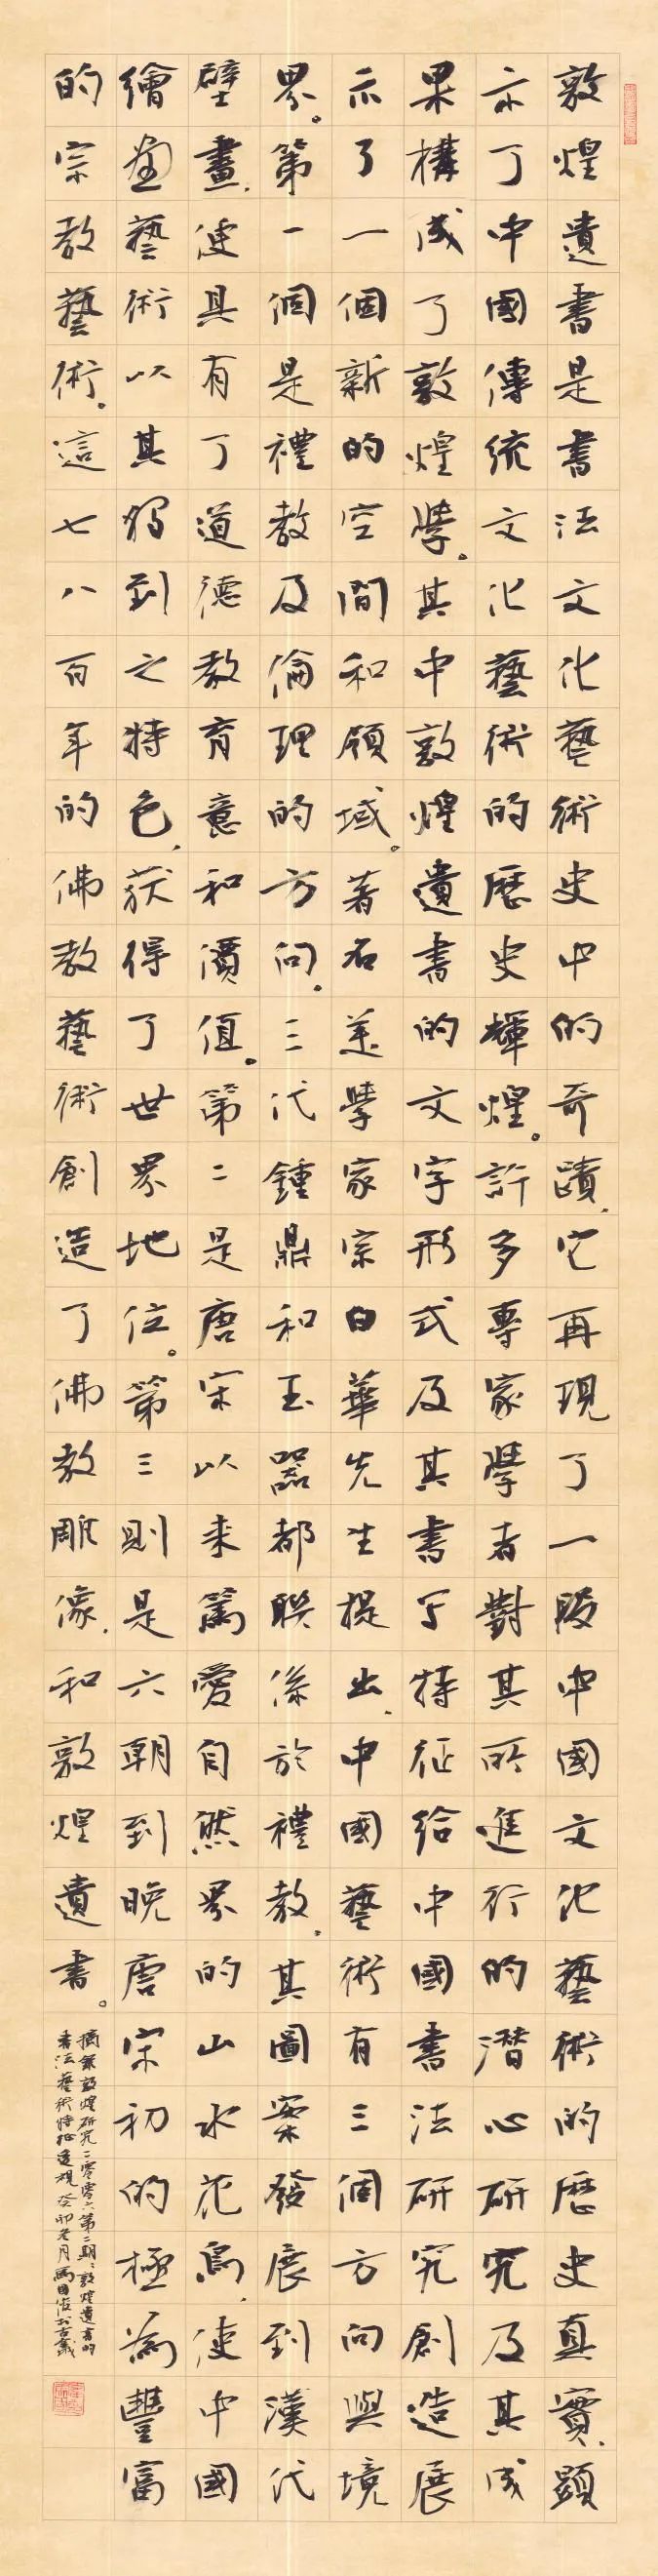 敦煌遺書是書法文化藝術史中的奇蹟,它再現了一段中國文化藝術的歷史真實,顯
示了中國傳統文化藝術的歷史輝煌。許多專家學者對其所進行的潛心研究及其成
果構成了敦煌學。其中敦煌遺書的文字形式及其書寫特征給中國書法研究創造展
示了一個新的空間和領域。著名美學家宗白華先生提出,中國藝術有三個方向與境
界。第一個是禮教及倫理的方向。三代鍾鼎和玉器都聯係於禮教,其圖案發展到漢代
壁畫,使具有了道德教育意和價值。第二是唐宋以來篤愛自然界的山水花鳥,使中國
繪畫藝術以其獨到之特色,获得了世界地位。第三則是六朝到晚唐宋初的極為豐富
的宗教藝術。這七八百年的佛教藝術創造了佛教雕像,和敦煌遺書。
摘錄敦煌研究二零零六第二期敦煌遺書的
書法藝術特征透視 癸卯冬月